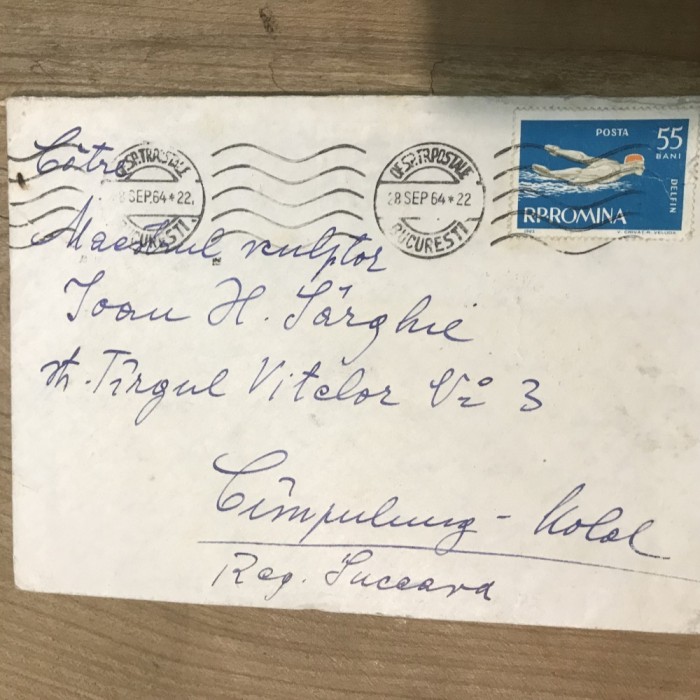 POSTA
55
BANI
DELFIN
R.P.ROMINA
Către
OF.SP.TR.POSTALE
28 SEP.64*22
BUCUREȘTI
OF.SP.TR.POSTALE
28 SEP.64*22
BUCUREȘTI
Maestrul sculptor
Ioan H. Sârghie
str. Tîrgul Vitelor No 3
Cîmpulung - Mold
Reg. Suceava